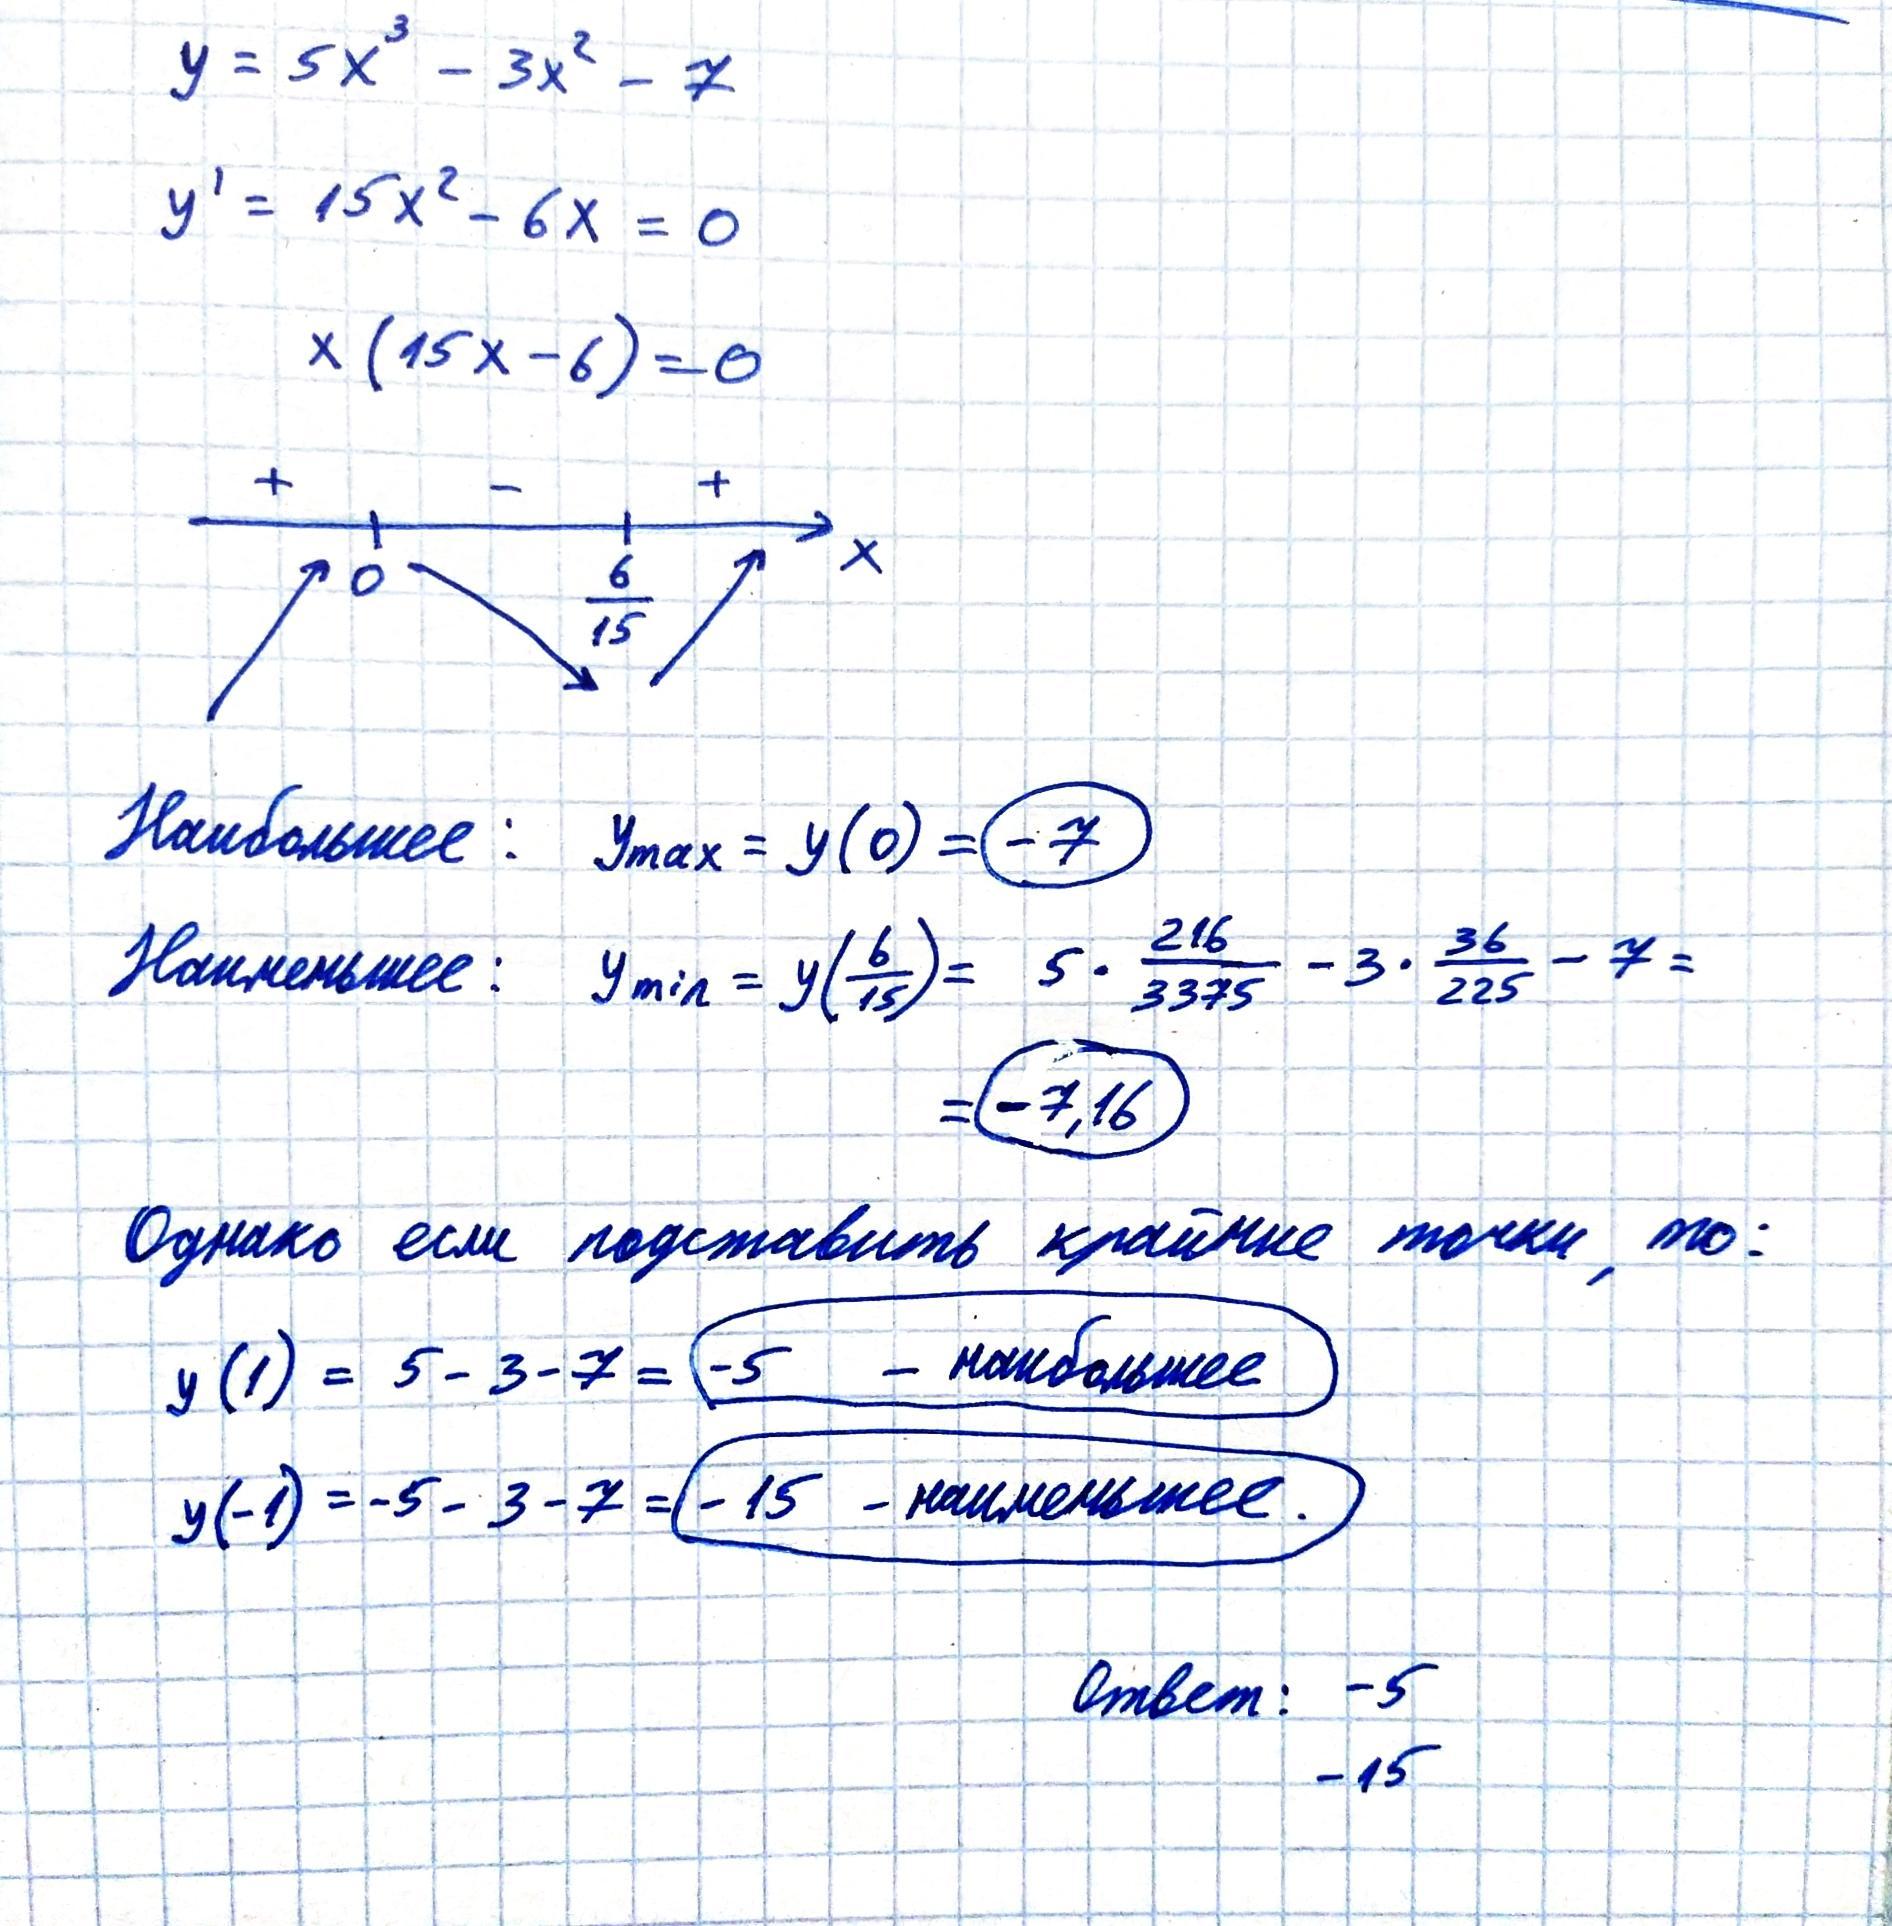 y = 5x³ - 3x² - 7
y' = 15x² - 6x = 0
x(15x - 6) = 0
+ - +
0 6/15 x
Наибольшее: ymax = y(0) = -7
Наименьшее: ymin = y(6/15) = 5 · 216/3375 - 3 · 36/225 - 7 =
= -7,16
Однако если подставить крайние точки, то:
y(1) = 5 - 3 - 7 = -5 - наибольшее
y(-1) = -5 - 3 - 7 = -15 - наименьшее.
Ответ: -5
-15